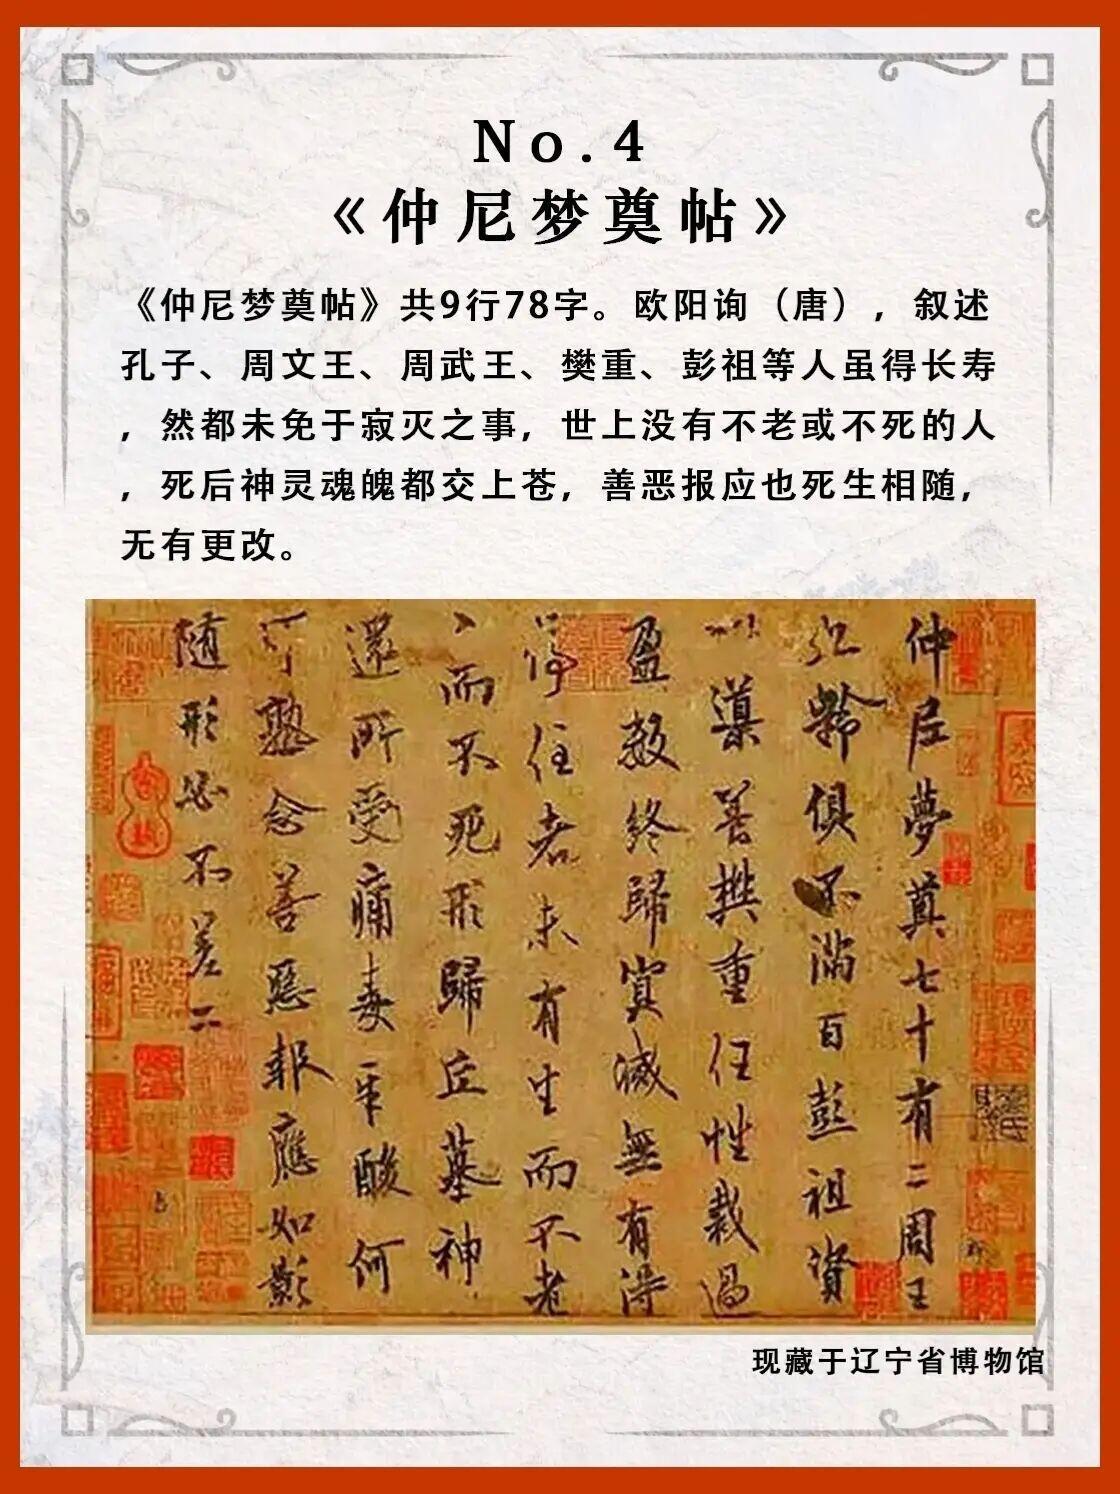 No.4
《仲尼梦奠帖》
《仲尼梦奠帖》共9行78字。欧阳询（唐），叙述
孔子、周文王、周武王、樊重、彭祖等人虽得长寿
，然都未免于寂灭之事，世上没有不老或不死的人
，死后神灵魂魄都交上苍，善恶报应也死生相随，
无有更改。
仲尼夢奠七十有二周王
九齡俱不滿百彭祖資
以導養樊重任性裁過
盈數終歸冥滅無有得
停住者未有生而不老
々而不死形歸丘墓神
還所受痛毒辛酸何
可熟念善惡報應如影
隨形必不差二
现藏于辽宁省博物馆